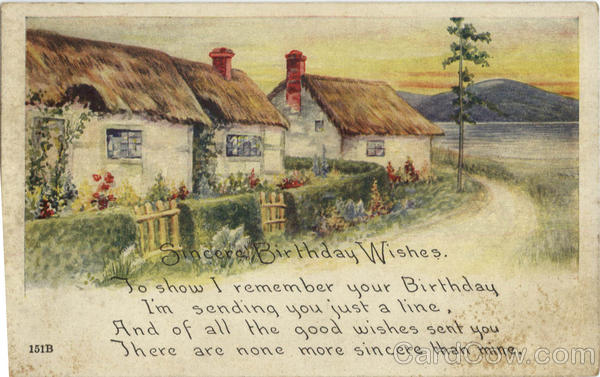 Sincere Birthday Wishes.
To show I remember your Birthday
I'm sending you just a line,
And of all the good wishes sent you
There are none more sincere than mine.
151B
CardCow.com